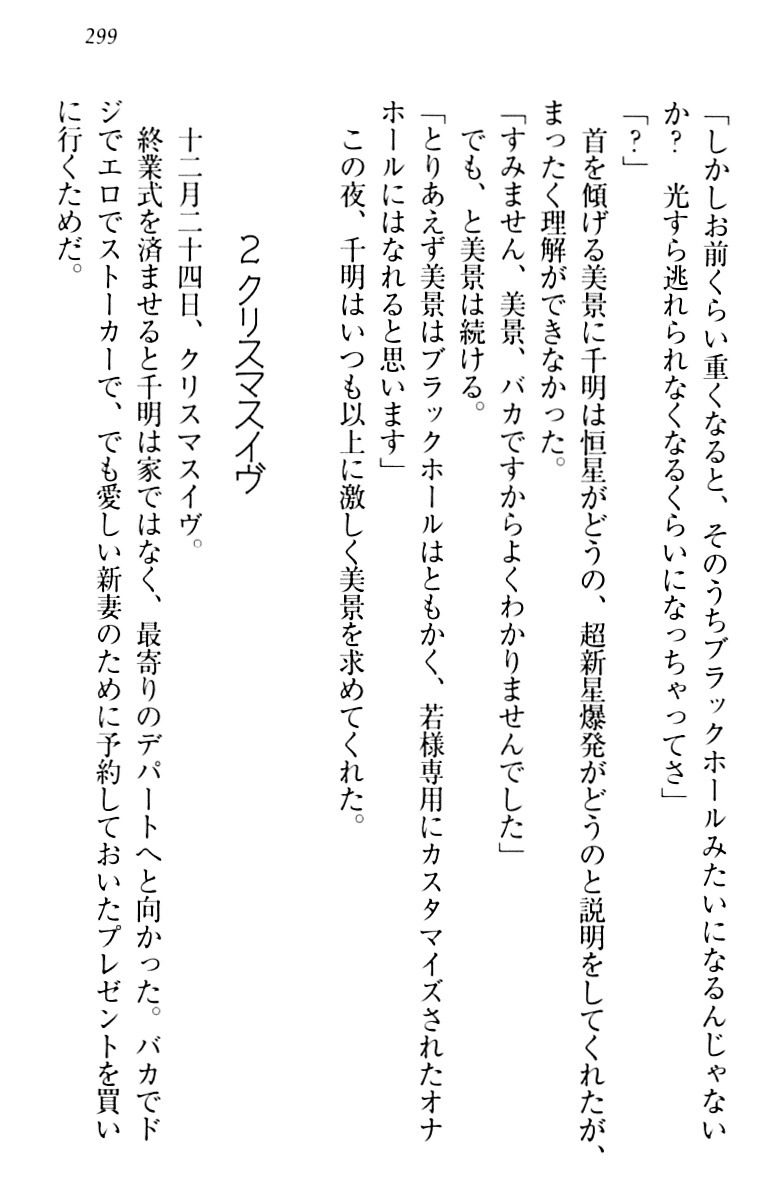 299
「しかしお前くらい重くなると、そのうちブラックホールみたいになるんじゃない
か？　光すら逃れられなくなるくらいになっちゃってさ」
「？」
　首を傾げる美景に千明は恒星がどうの、超新星爆発がどうのと説明をしてくれたが、
まったく理解ができなかった。
「すみません、美景、バカですからよくわかりませんでした」
　でも、と美景は続ける。
「とりあえず美景はブラックホールはともかく、若様専用にカスタマイズされたオナ
ホールにはなれると思います」
　この夜、千明はいつも以上に激しく美景を求めてくれた。
２ クリスマスイヴ
　十二月二十四日、クリスマスイヴ。
　終業式を済ませると千明は家ではなく、最寄りのデパートへと向かった。バカでド
ジでエロでストーカーで、でも愛しい新妻のために予約しておいたプレゼントを買い
に行くためだ。